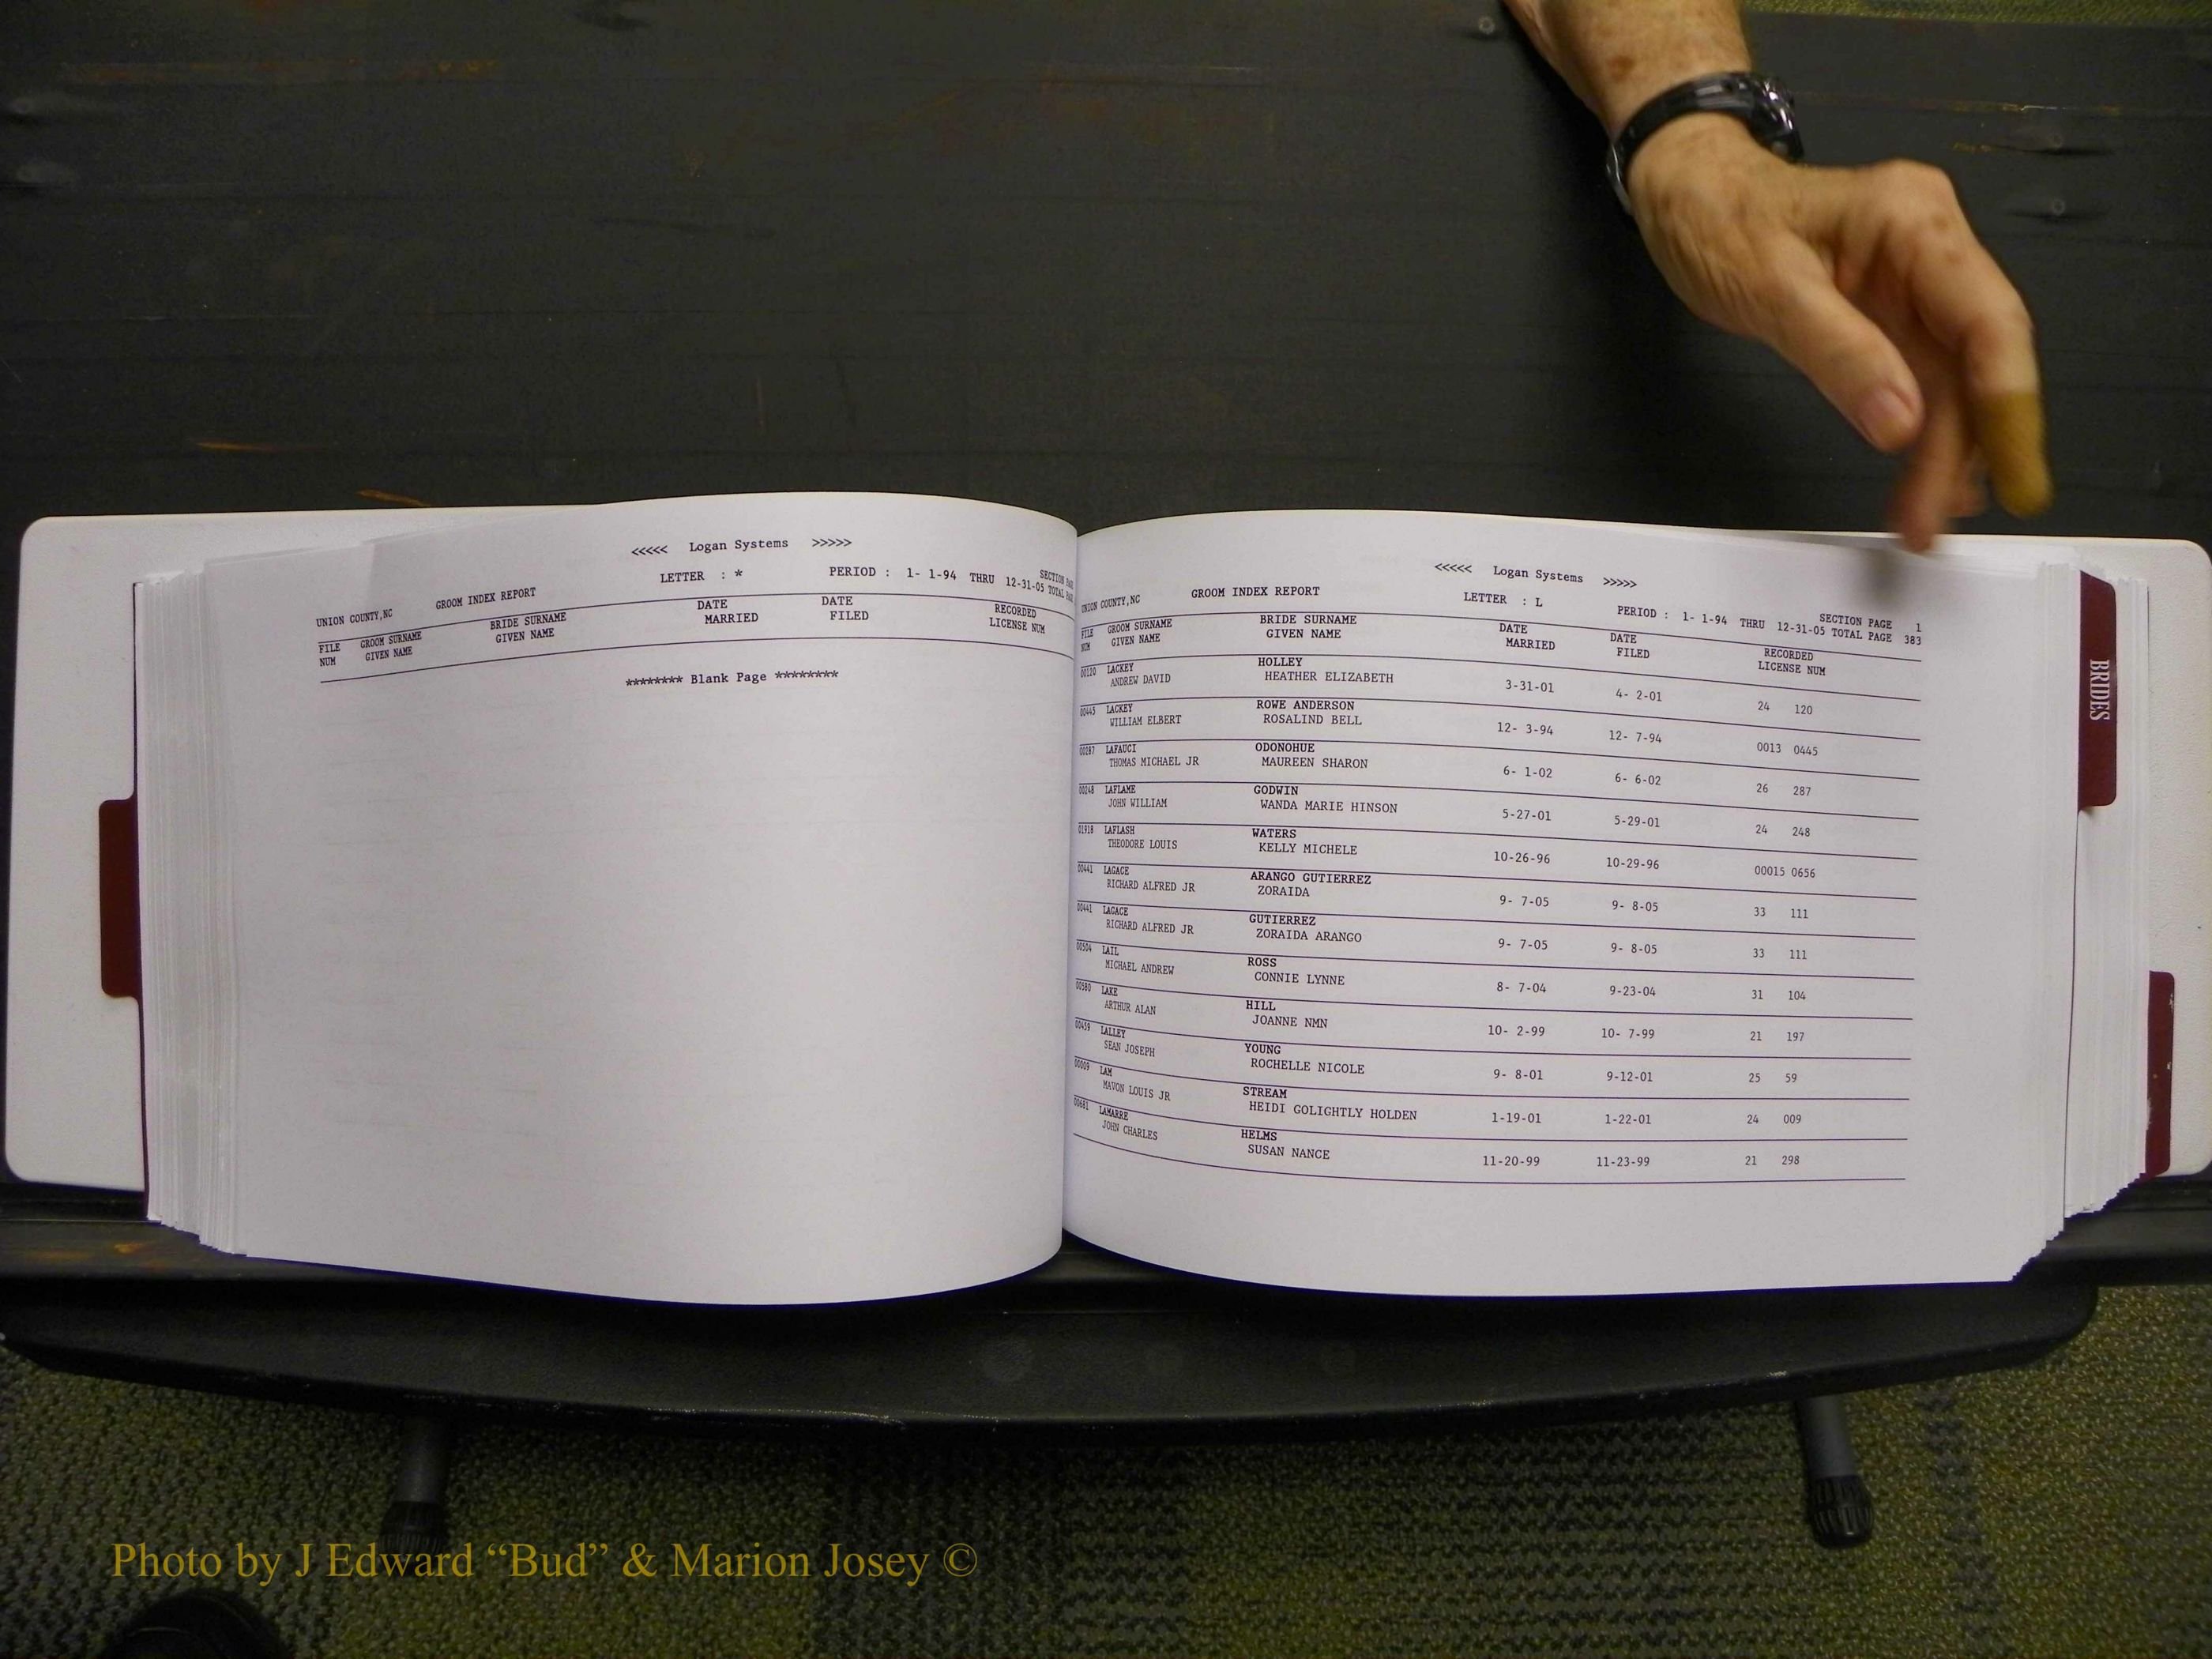 <<<<< Logan Systems >>>>>
UNION COUNTY,NC GROOM INDEX REPORT LETTER : * PERIOD : 1- 1-94 THRU 12-31-05 SECTION TOTAL
FILE GROOM SURNAME BRIDE SURNAME DATE DATE RECORDED
NUM GIVEN NAME GIVEN NAME MARRIED FILED LICENSE NUM
******** Blank Page ********
<<<<< Logan Systems >>>>>
UNION COUNTY,NC GROOM INDEX REPORT LETTER : L PERIOD : 1- 1-94 THRU 12-31-05 SECTION PAGE 1
TOTAL PAGE 383
FILE GROOM SURNAME BRIDE SURNAME DATE DATE RECORDED
NUM GIVEN NAME GIVEN NAME MARRIED FILED LICENSE NUM
00120 LACKEY HOLLEY
ANDREW DAVID HEATHER ELIZABETH 3-31-01 4- 2-01 24 120
00445 LACKEY ROWE ANDERSON
WILLIAM ELBERT ROSALIND BELL 12- 3-94 12- 7-94 0013 0445
00287 LAFAUCI ODONOHUE
THOMAS MICHAEL JR MAUREEN SHARON 6- 1-02 6- 6-02 26 287
00248 LAFLAME GODWIN
JOHN WILLIAM WANDA MARIE HINSON 5-27-01 5-29-01 24 248
01918 LAFLASH WATERS
THEODORE LOUIS KELLY MICHELE 10-26-96 10-29-96 00015 0656
00441 LAGACE ARANGO GUTIERREZ
RICHARD ALFRED JR ZORAIDA 9- 7-05 9- 8-05 33 111
00441 LAGACE GUTIERREZ
RICHARD ALFRED JR ZORAIDA ARANGO 9- 7-05 9- 8-05 33 111
00504 LAIL ROSS
MICHAEL ANDREW CONNIE LYNNE 8- 7-04 9-23-04 31 104
00580 LAKE HILL
ARTHUR ALAN JOANNE NMN 10- 2-99 10- 7-99 21 197
00459 LALLEY YOUNG
SEAN JOSEPH ROCHELLE NICOLE 9- 8-01 9-12-01 25 59
00009 LAM STREAM
MAVON LOUIS JR HEIDI GOLIGHTLY HOLDEN 1-19-01 1-22-01 24 009
00681 LAMARRE HELMS
JOHN CHARLES SUSAN NANCE 11-20-99 11-23-99 21 298
BRIDES
Photo by J Edward “Bud” & Marion Josey ©